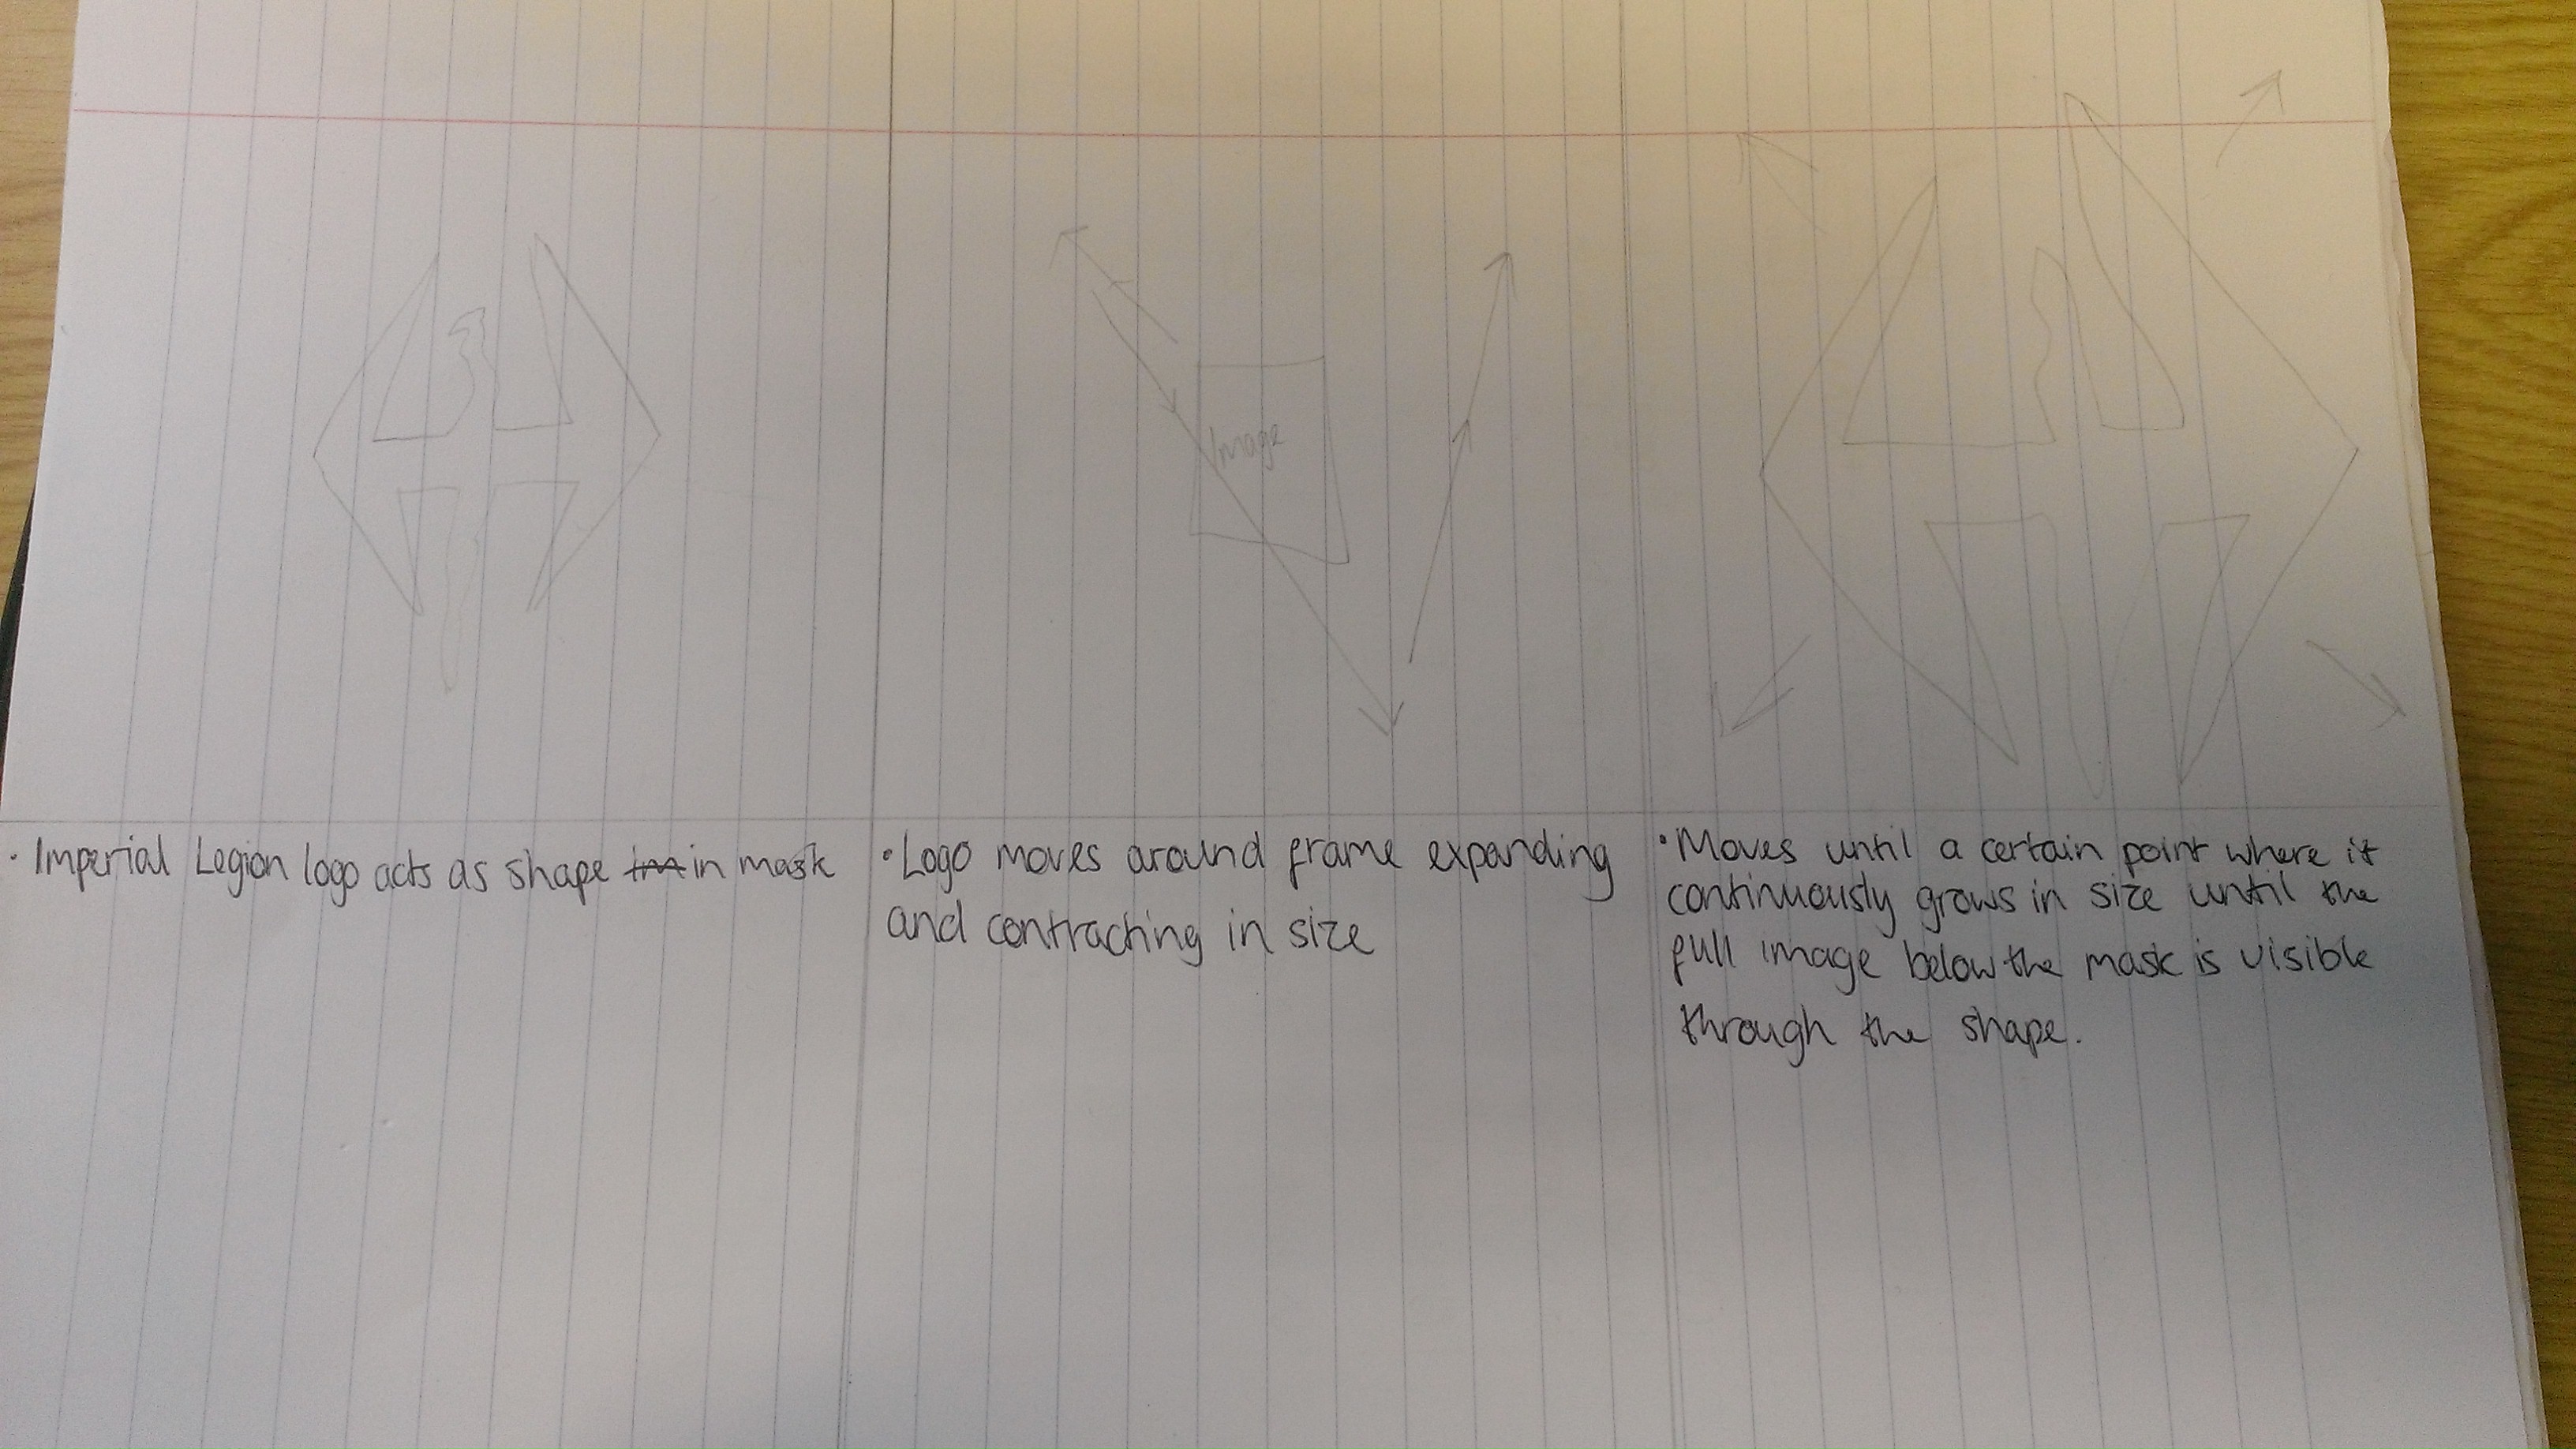 Image
· Imperial Legion logo acts as shape in mask
· Logo moves around frame expanding
and contracting in size
· Moves until a certain point where it
continuously grows in size until the
full image below the mask is visible
through the shape.